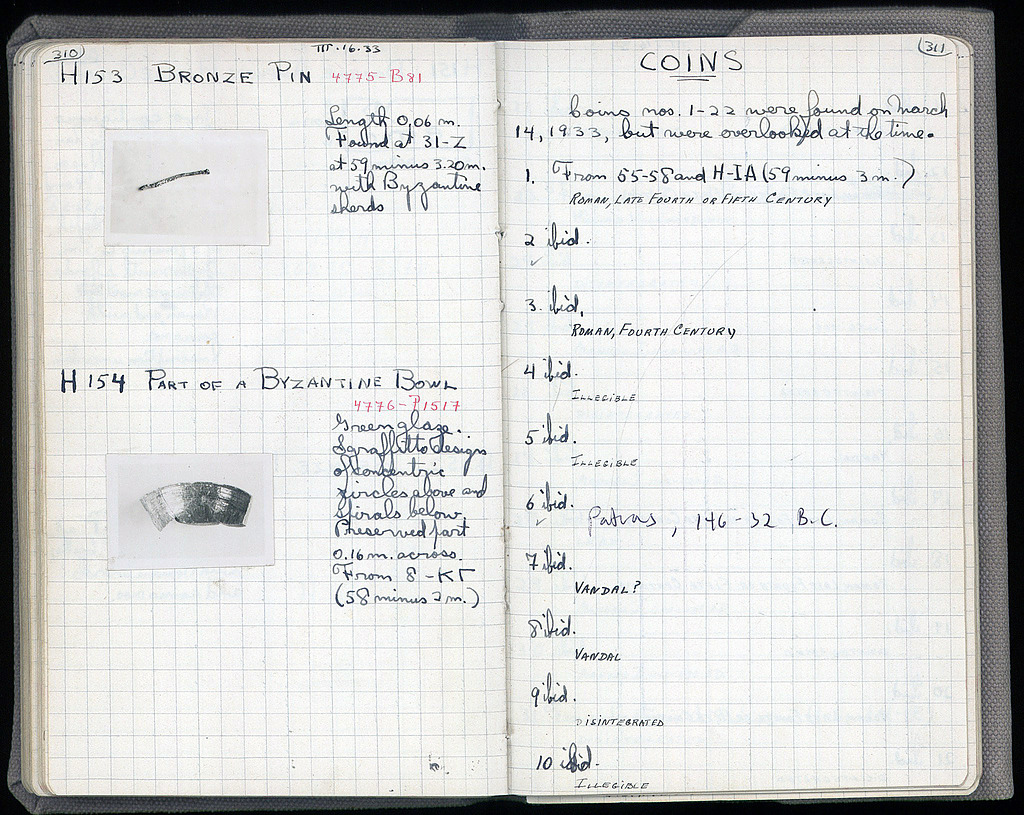 310
III.16.33
H153 BRONZE PIN 4775-B81
Length 0,06 m.
Found at 31-Z
at 59 minus 3.20 m.
with Byzantine
sherds
H 154 PART OF A BYZANTINE BOWL
4776-P1517
Green glaze.
Sgraffitto designs
of concentric
circles above and
spirals below.
Preserved part
0.16 m. across.
From 8-KΓ
(58 minus 2 m.)
311
COINS
Coins nos. 1-22 were found on March
14, 1933, but were overlooked at the time.
1. From 55-58 and H-IA (59 minus 3 m.)
ROMAN, LATE FOURTH OR FIFTH CENTURY
2 ibid.
✓
3. ibid.
ROMAN, FOURTH CENTURY
4 ibid.
ILLEGIBLE
5 ibid.
ILLEGIBLE
6 ibid.
✓ Patras, 146-32 B.C.
7 ibid.
VANDAL?
8 ibid.
VANDAL
9 ibid.
DISINTEGRATED
10 ibid.
ILLEGIBLE